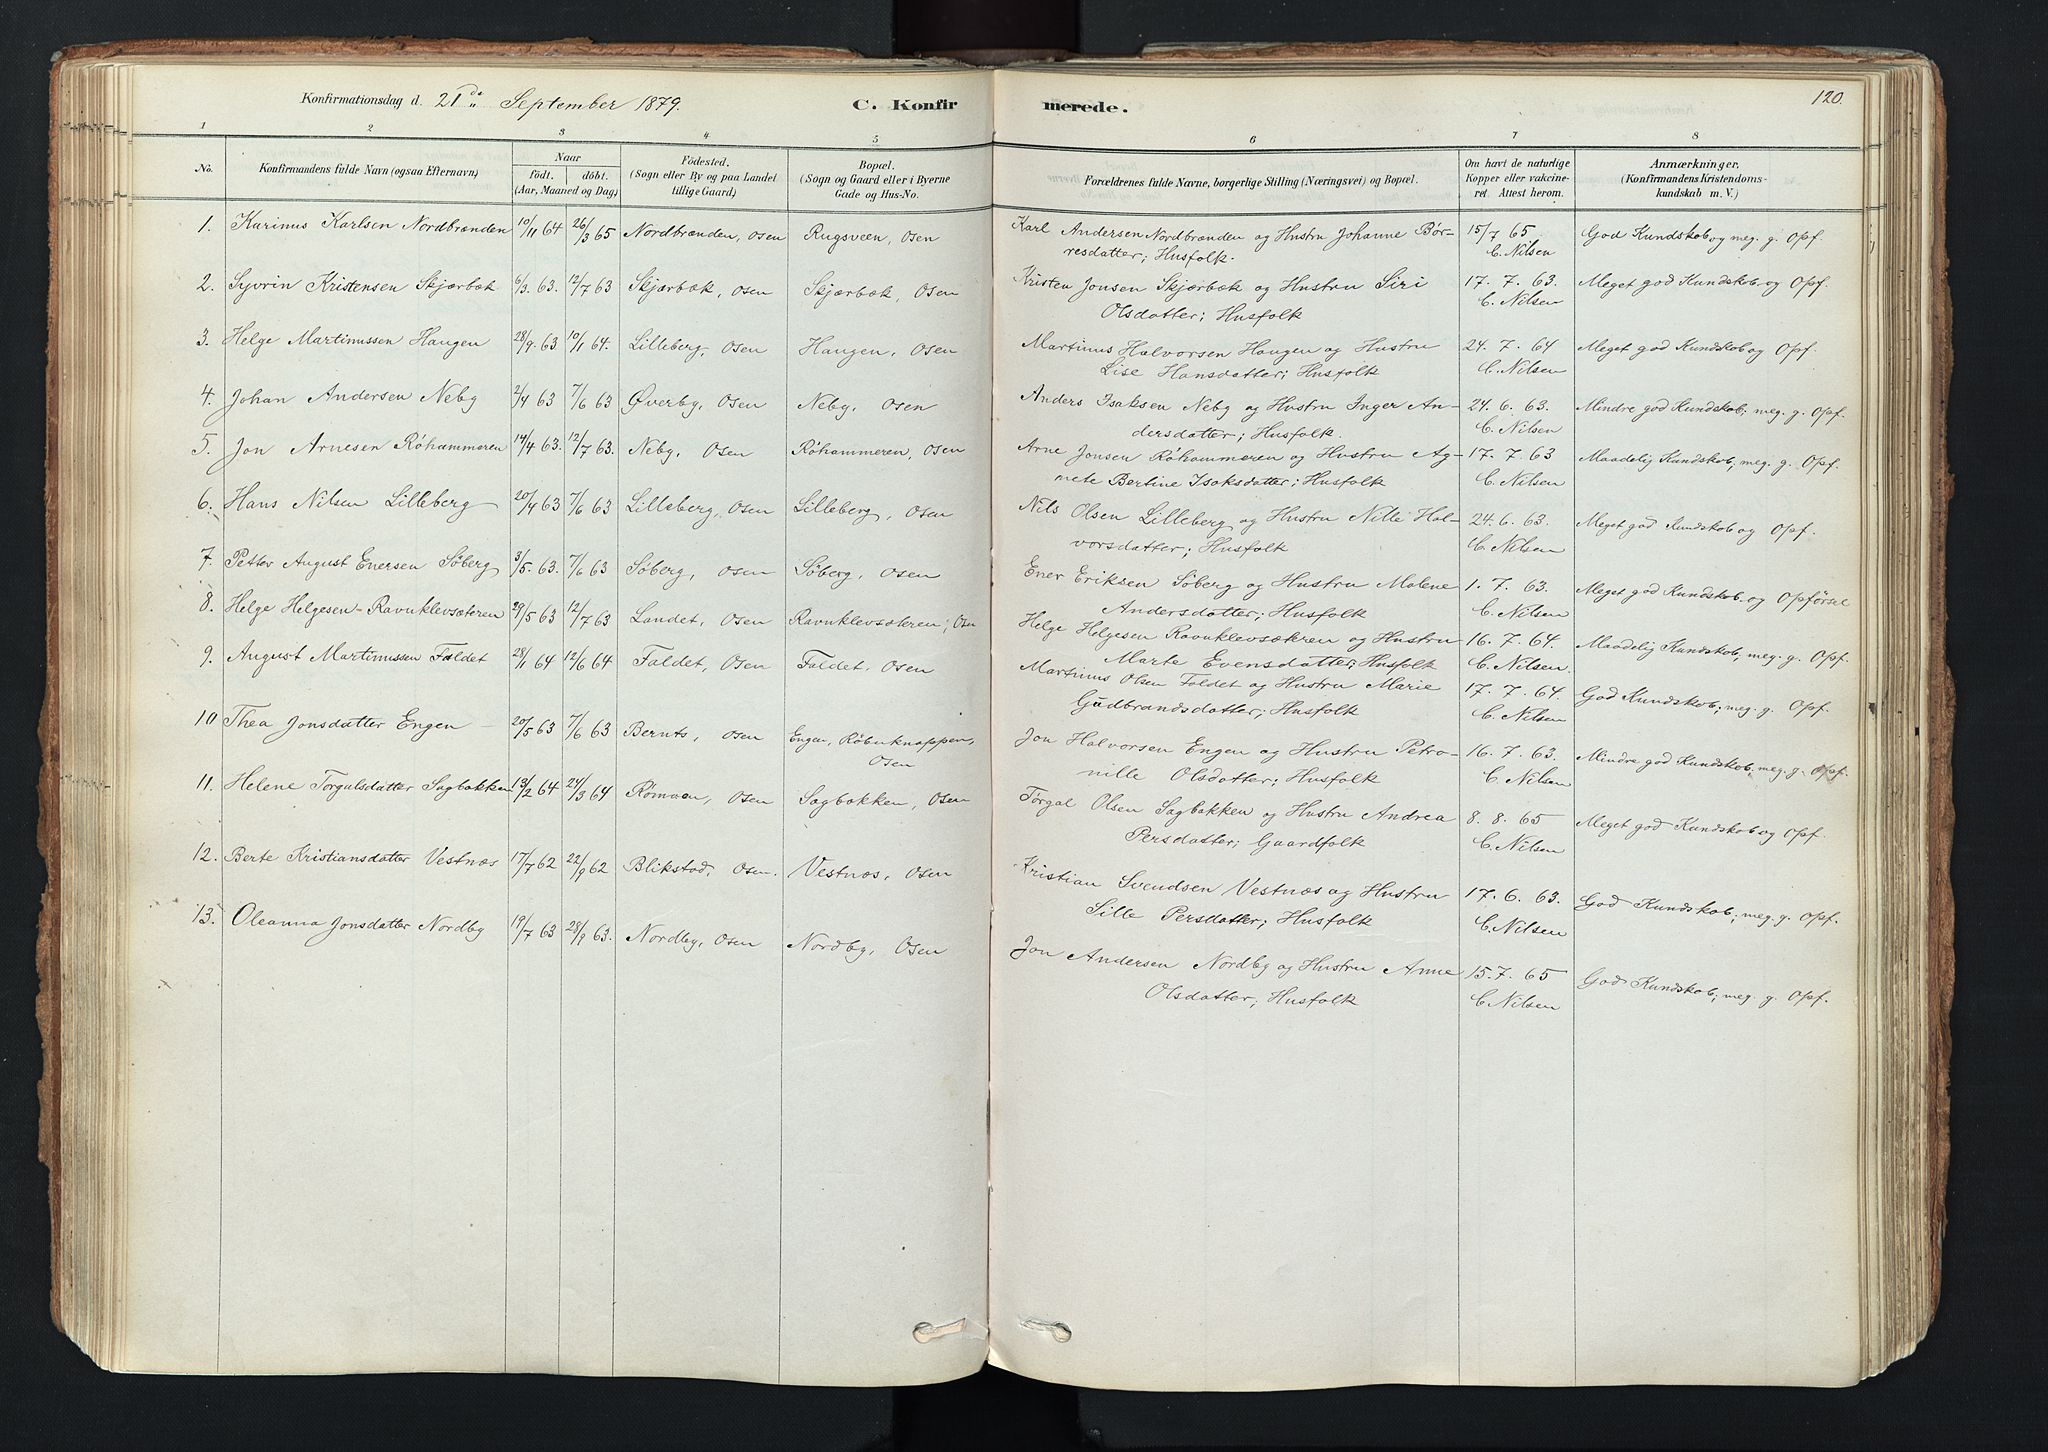 Konfirmationsdag d. 21de September 1879.
C. Konfirmerede.
120.
1 2 3 4 5 6 7 8
No.
Konfirmandens fulde Navn (ogsaa Efternavn)
Naar
födt. döbt.
(Aar, Maaned og Dag)
Födested.
(Sogn eller By og paa Landet
tillige Gaard)
Bopæl.
(Sogn og Gaard eller i Byerne
Gade og Hus-No.
Forældrenes fulde Navne, borgerlige Stilling (Næringsvei) og Bopæl.
Om havt de naturlige
Kopper eller vakcine-
ret. Attest herom.
Anmærkninger.
(Konfirmandens Kristendoms-
kundskab m. V.)
1. Karinus Karlsen Nordbrænden 10/11 64 26/3 65 Nordbrænden, Osen Rugsveen, Osen Karl Andersen Nordbrænden og Hustru Johanne Bör- 15/7 65 God Kundskab og meg. g. Opf.
resdatter; Husfolk. C. Nilsen
2. Syvrin Kristensen Skjærbæk 6/3. 63. 12/7 63 Skjærbæk, Osen Skjærbæk, Osen Kristen Jonsen Skjærbæk og Hustru Siri 17. 7. 63. Meget god Kundskab og Opf.
Olsdatter; Husfolk C. Nilsen
3. Helge Martinussen Haugen 28/9. 63 10/1 64. Lilleberg, Osen Haugen, Osen Martinus Halvorsen Haugen og Hustru 24. 7. 64 Meget god Kundskab og Opf.
Lise Hansdatter; Husfolk C. Nilsen
4. Johan Andersen Neby 2/4 63 7/6 63 Øverby, Osen Neby, Osen Anders Isaksen Neby og Hustru Inger An- 24. 6. 63. Mindre god Kundskab; meg. g. Opf.
dersdatter; Husfolk. C. Nilsen
5. Jon Arnesen Röhammeren 14/4 63. 12/7 63. Neby, Osen Röhammeren, Osen Arne Jonsen Röhammeren og Hustru Ag- 17. 7. 63 Maadelig Kundskab; meg. g. Opf.
nete Bertine Isaksdatter; Husfolk C. Nilsen
6. Hans Nilsen Lilleberg 20/4 63 7/6 63 Lilleberg, Osen Lilleberg, Osen Nils Olsen Lilleberg og Hustru Nille Hal- 24. 6. 63. Meget god Kundskab og Opf.
vorsdatter; Husfolk C. Nilsen
7. Petter August Enersen Söberg 3/5. 63. 7/6 63 Söberg, Osen Söberg, Osen Ener Eriksen Söberg og Hustru Malene 1. 7. 63. Meget god Kundskab og Opförsel
Andersdatter; Husfolk C. Nilsen
8. Helge Helgesen Ravnklevsæteren 29/5 63 12/7 63 Landet, Osen Ravnklevsæteren; Osen Helge Helgesen Ravnklevsæteren og Hustru 16. 7. 64. Maadelig Kundskab; meg. g. Opf.
Marte Evensdatter; Husfolk C. Nilsen.
9. August Martinussen Faldet 28/1 64 12/6 64 Faldet, Osen Faldet, Osen Martinus Olsen Faldet og Hustru Marie 17. 7. 64. God Kundskab; meg. g. Opf.
Gudbrandsdatter; Husfolk C. Nilsen
10 Thea Jonsdatter Engen 20/5 63 7/6 63 Bernts, Osen Engen, Röbuknappen, Jon Halvorsen Engen og Hustru Petro- 16. 7. 63. Mindre god Kundskab; meg. g. Opf.
Osen nille Olsdatter; Husfolk C. Nilsen
11. Helene Torgalsdatter Sagbakken 13/2 64 24/3 64 Römoen, Osen Sagbakken, Osen Törgal Olsen Sagbakken og Hustru Andrea 8. 8. 65 Meget god Kundskab og Opf.
Persdatter; Gaardfolk C. Nilsen
12. Berte Kristiansdatter Vestnæs 17/7 62 22/9 62 Blikstad, Osen. Vestnæs, Osen Kristian Svendsen Vestnæs og Hustru 17. 6. 63. God Kundskab; meg. g. Opf.
Sille Persdatter; Husfolk C. Nilsen
13. Oleanna Jonsdatter Nordby 19/7 63 28/9 63. Nordby, Osen Nordby, Osen Jon Andersen Nordby og Hustru Anne 15. 7. 65 God Kundskab; meg. g. Opf.
Olsdatter; Husfolk C. Nilsen